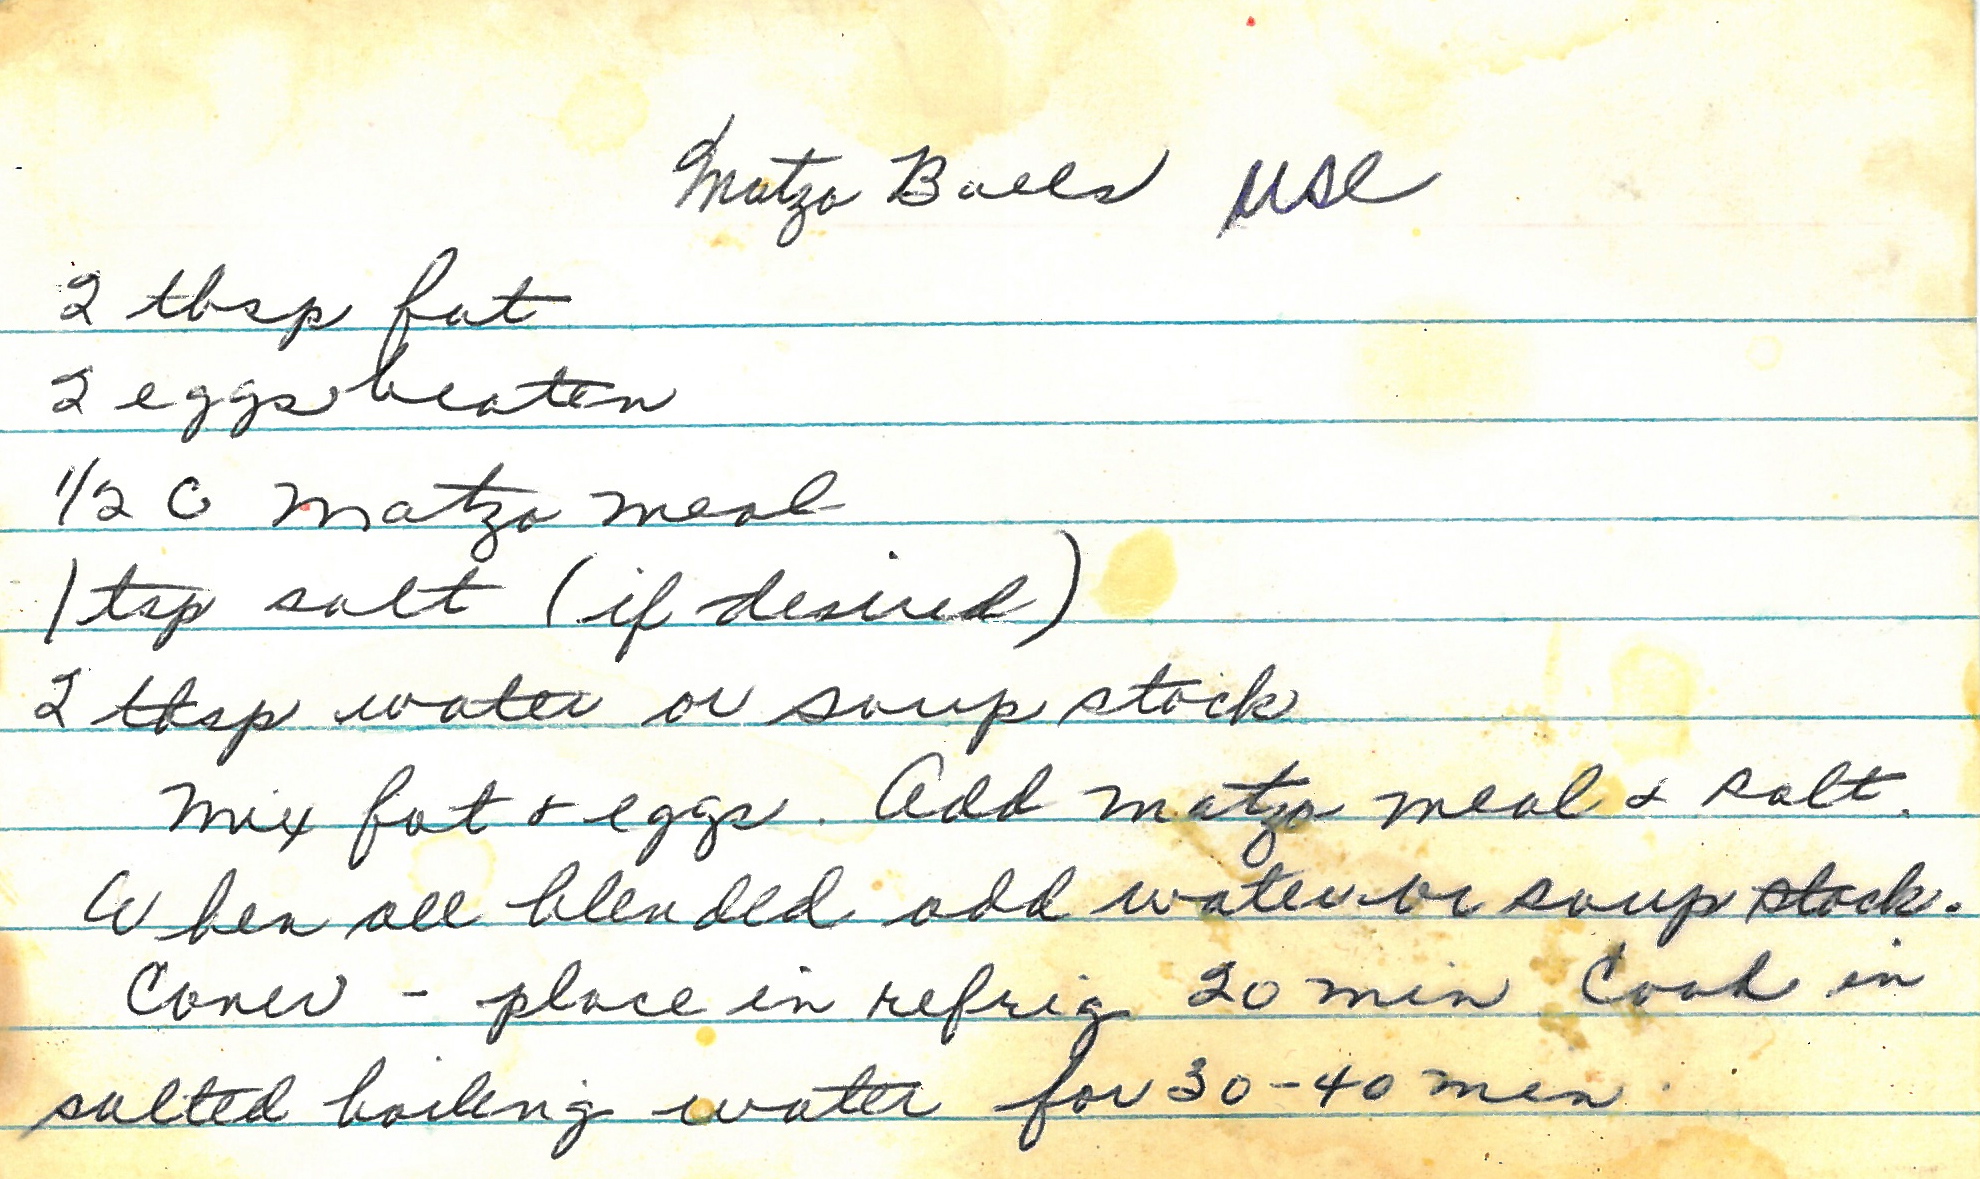 Matzo Balls use
2 tbsp fat
2 eggs beaten
1/2 C matzo meal
1 tsp salt (if desired)
2 tbsp water or soup stock
Mix fat & eggs. Add matzo meal & salt.
When all blended add water or soup stock.
Cover - place in refrig 20 min Cook in
salted boiling water for 30-40 min.